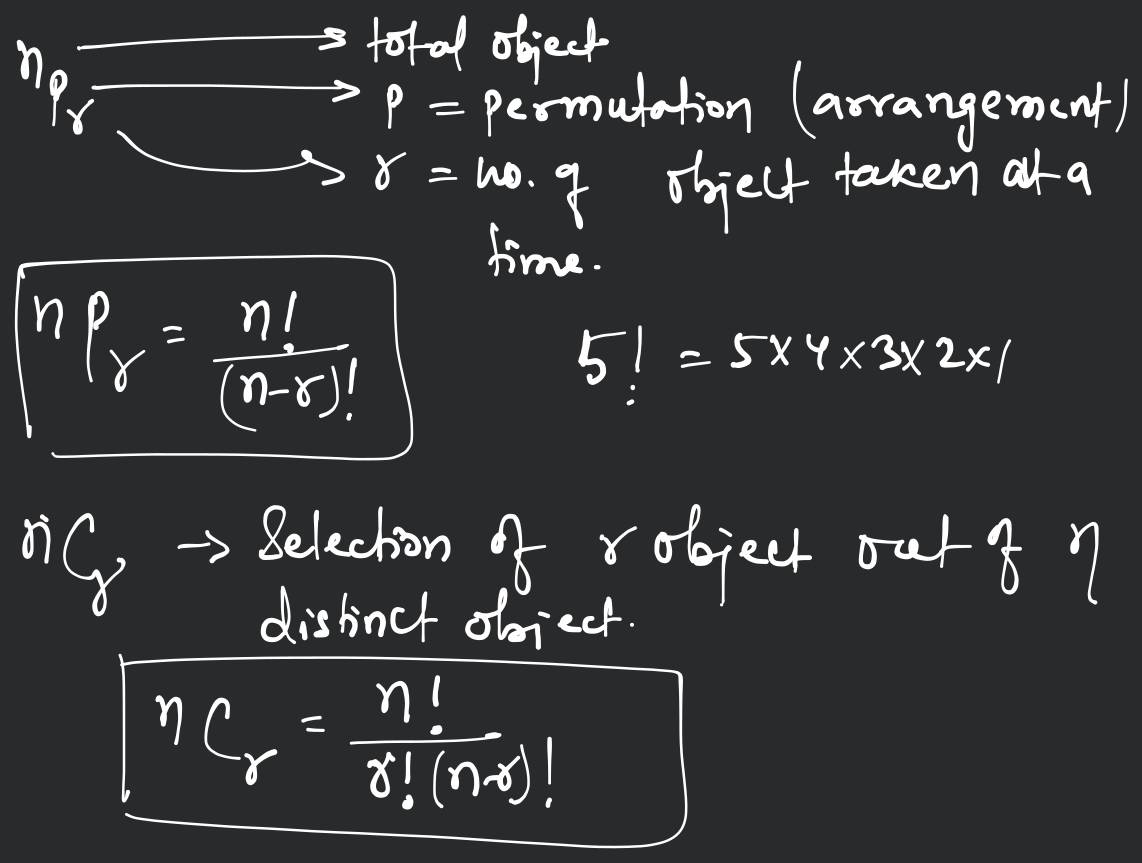 nPr → total object
→ P = Permutation (arrangement)
→ r = no. of object taken at a
time.
nPr = n!/(n-r)!
5! = 5x4x3x2x1
nCr → Selection of r object out of n
distinct object.
nCr = n!/r!(n-r)!